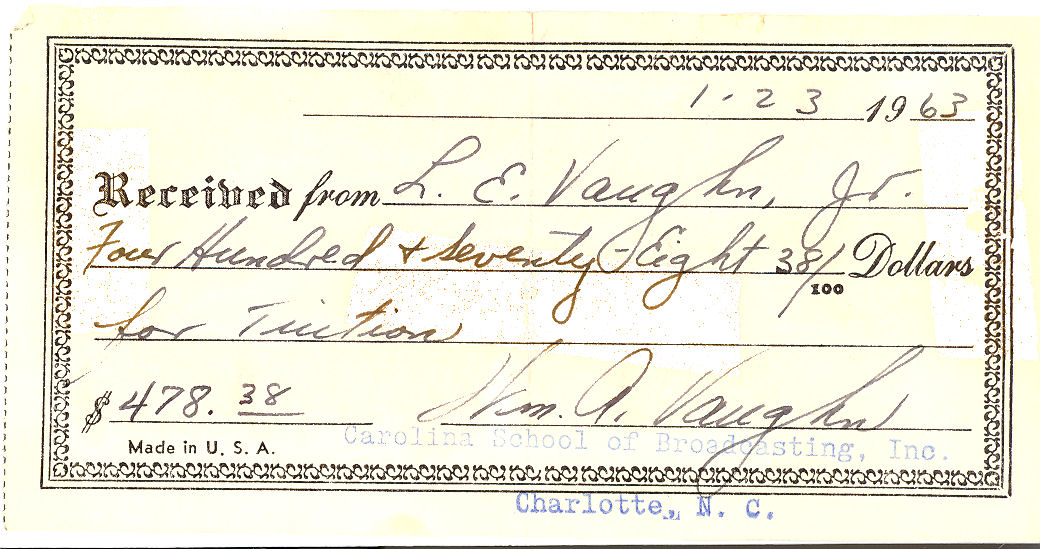 1-23 1963
Received from L. E. Vaughn, Jr.
Four Hundred & Seventy-Eight 38/100 Dollars
for Tuition
$ 478. 38 Wm. A. Vaughn
Made in U. S. A. Carolina School of Broadcasting, Inc.
Charlotte, N. C.